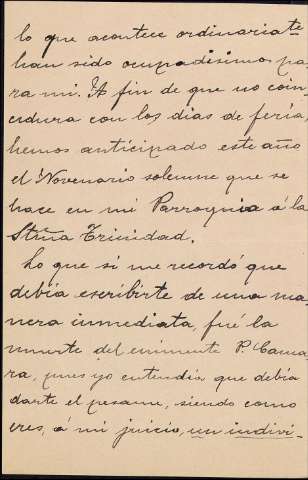 lo que acontece ordinariate
han sido ocupadísimos pa
ra mi. A fin de que no coin
cidiera con los días de feria,
hemos anticipado este año
el Novenario solemne que se
hace en mi Parroquia á la
Stma Trinidad.
Lo que si me recordó que
debía escribirte de una ma
nera inmediata, fué la
muerte del eminente P. Cama
ra, pues yo entendia que debia
darte el pesame, siendo como
eres, á mi juicio, un indivi-